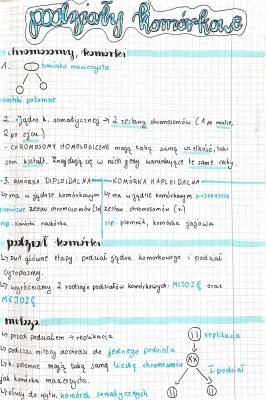 podziały komórkowe
chromosomy, komórki
1. komórka macierzysta
komórki potomne
2. Jądro k. somatycznej → 2 zestawy chromosomów (1 po matce,
1 po ojcu)
- CHROMOSOMY HOMOLOGICZNE mają taką samą wielkość, taki
sam kształt. Znajdują się w nich geny warunkujące te same cechy
3. KOMÓRKA DIPLOIDALNA — KOMÓRKA HAPLOIDALNA
↳ ma w jądrze komórkowym ↳ ma w jądrze komórkowym pojedynczy
podwójny zestaw chromosomów (2n) zestaw chromosomów (n)
np. komórki naskórka np. plemnik, komórka jajowa
podział komórki
↳ dwa główne etapy: podział jądra komórkowego i podział
cytoplazmy.
↳ wyróżniamy 2 rodzaje podziałów komórkowych: MITOZĘ oraz
MEJOZĘ
mitoza
↳ przed podziałem → replikacja
↳ podczas mitozy dochodzi do jednego podziału
↳ k. potomne mają taką samą liczbę chromosomów
jak komórka macierzysta.
↳ służy do komórek somatycznych
replikacja
I podział